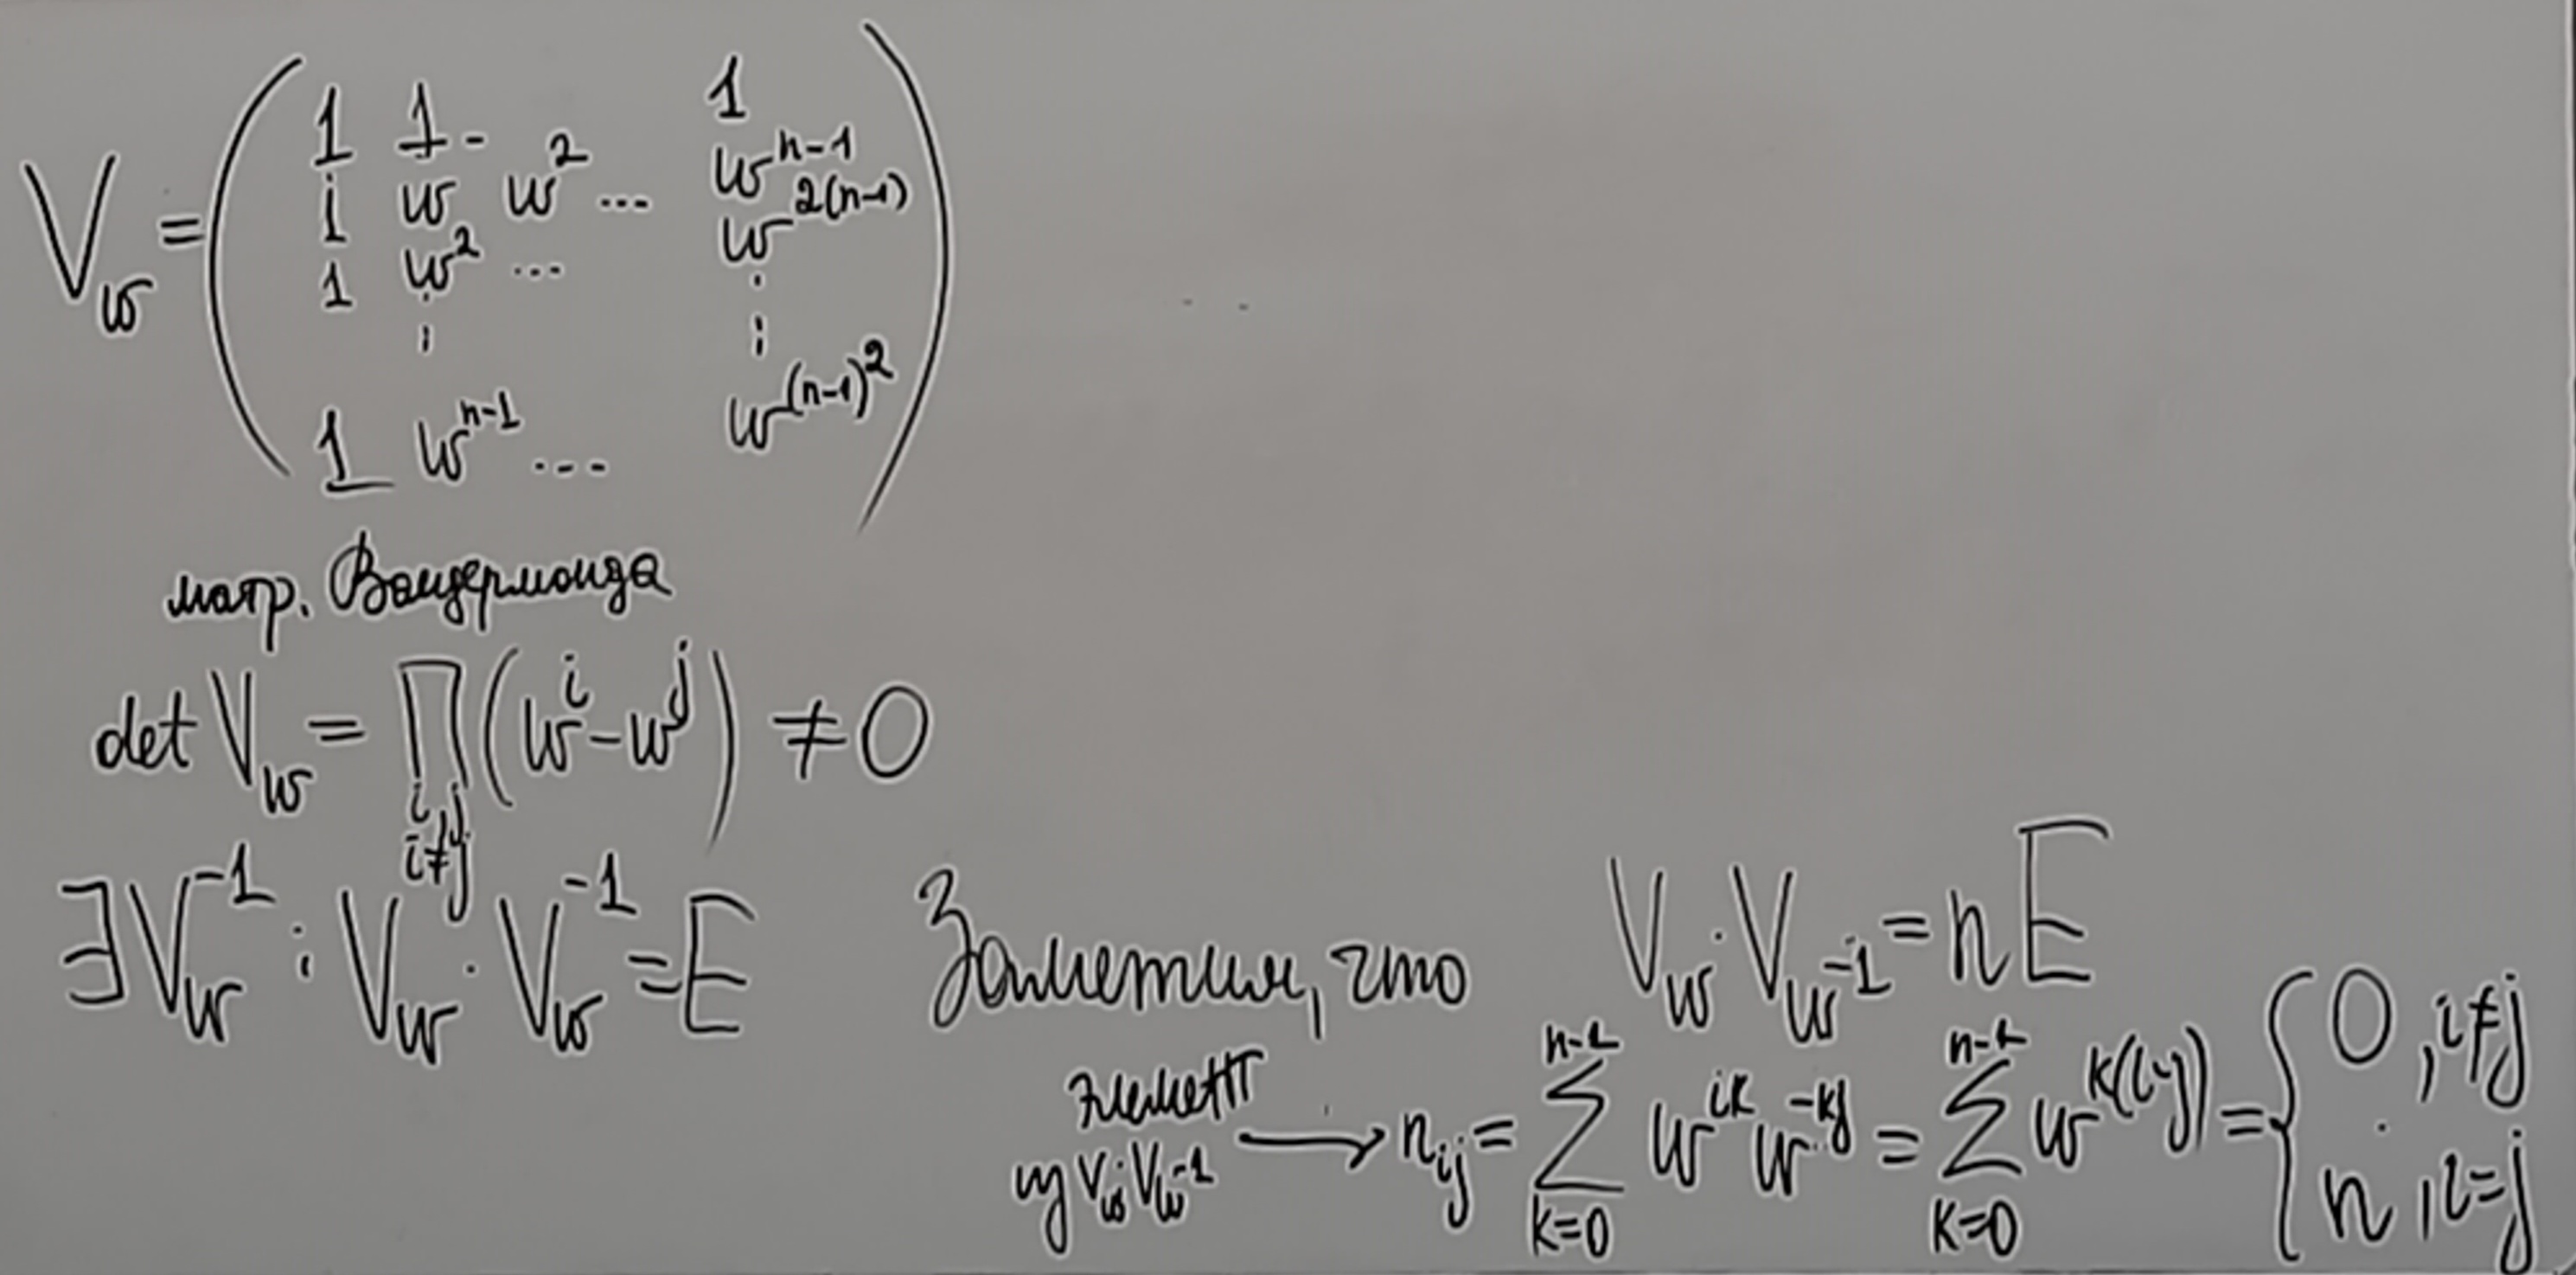 1 1 - 1
V_w = ( 1 w w^2 ... w^{n-1}
1 w^2 ... w^{2(n-1)}
⋮ ⋮
1 w^{n-1} ... w^{(n-1)^2} )
матр. Вандермонда
det V_w = ∏_{i,j i≠j} (w^i - w^j) ≠ 0
∃ V_w^{-1} : V_w · V_w^{-1} = E
Заметим, что V_w · V_{w^{-1}} = nE
элемент
из V_w · V_{w^{-1}} → n_{ij} = ∑_{k=0}^{n-1} w^{ik} w^{-kj} = ∑_{k=0}^{n-1} w^{k(i-j)} = { 0, i≠j
n, i=j